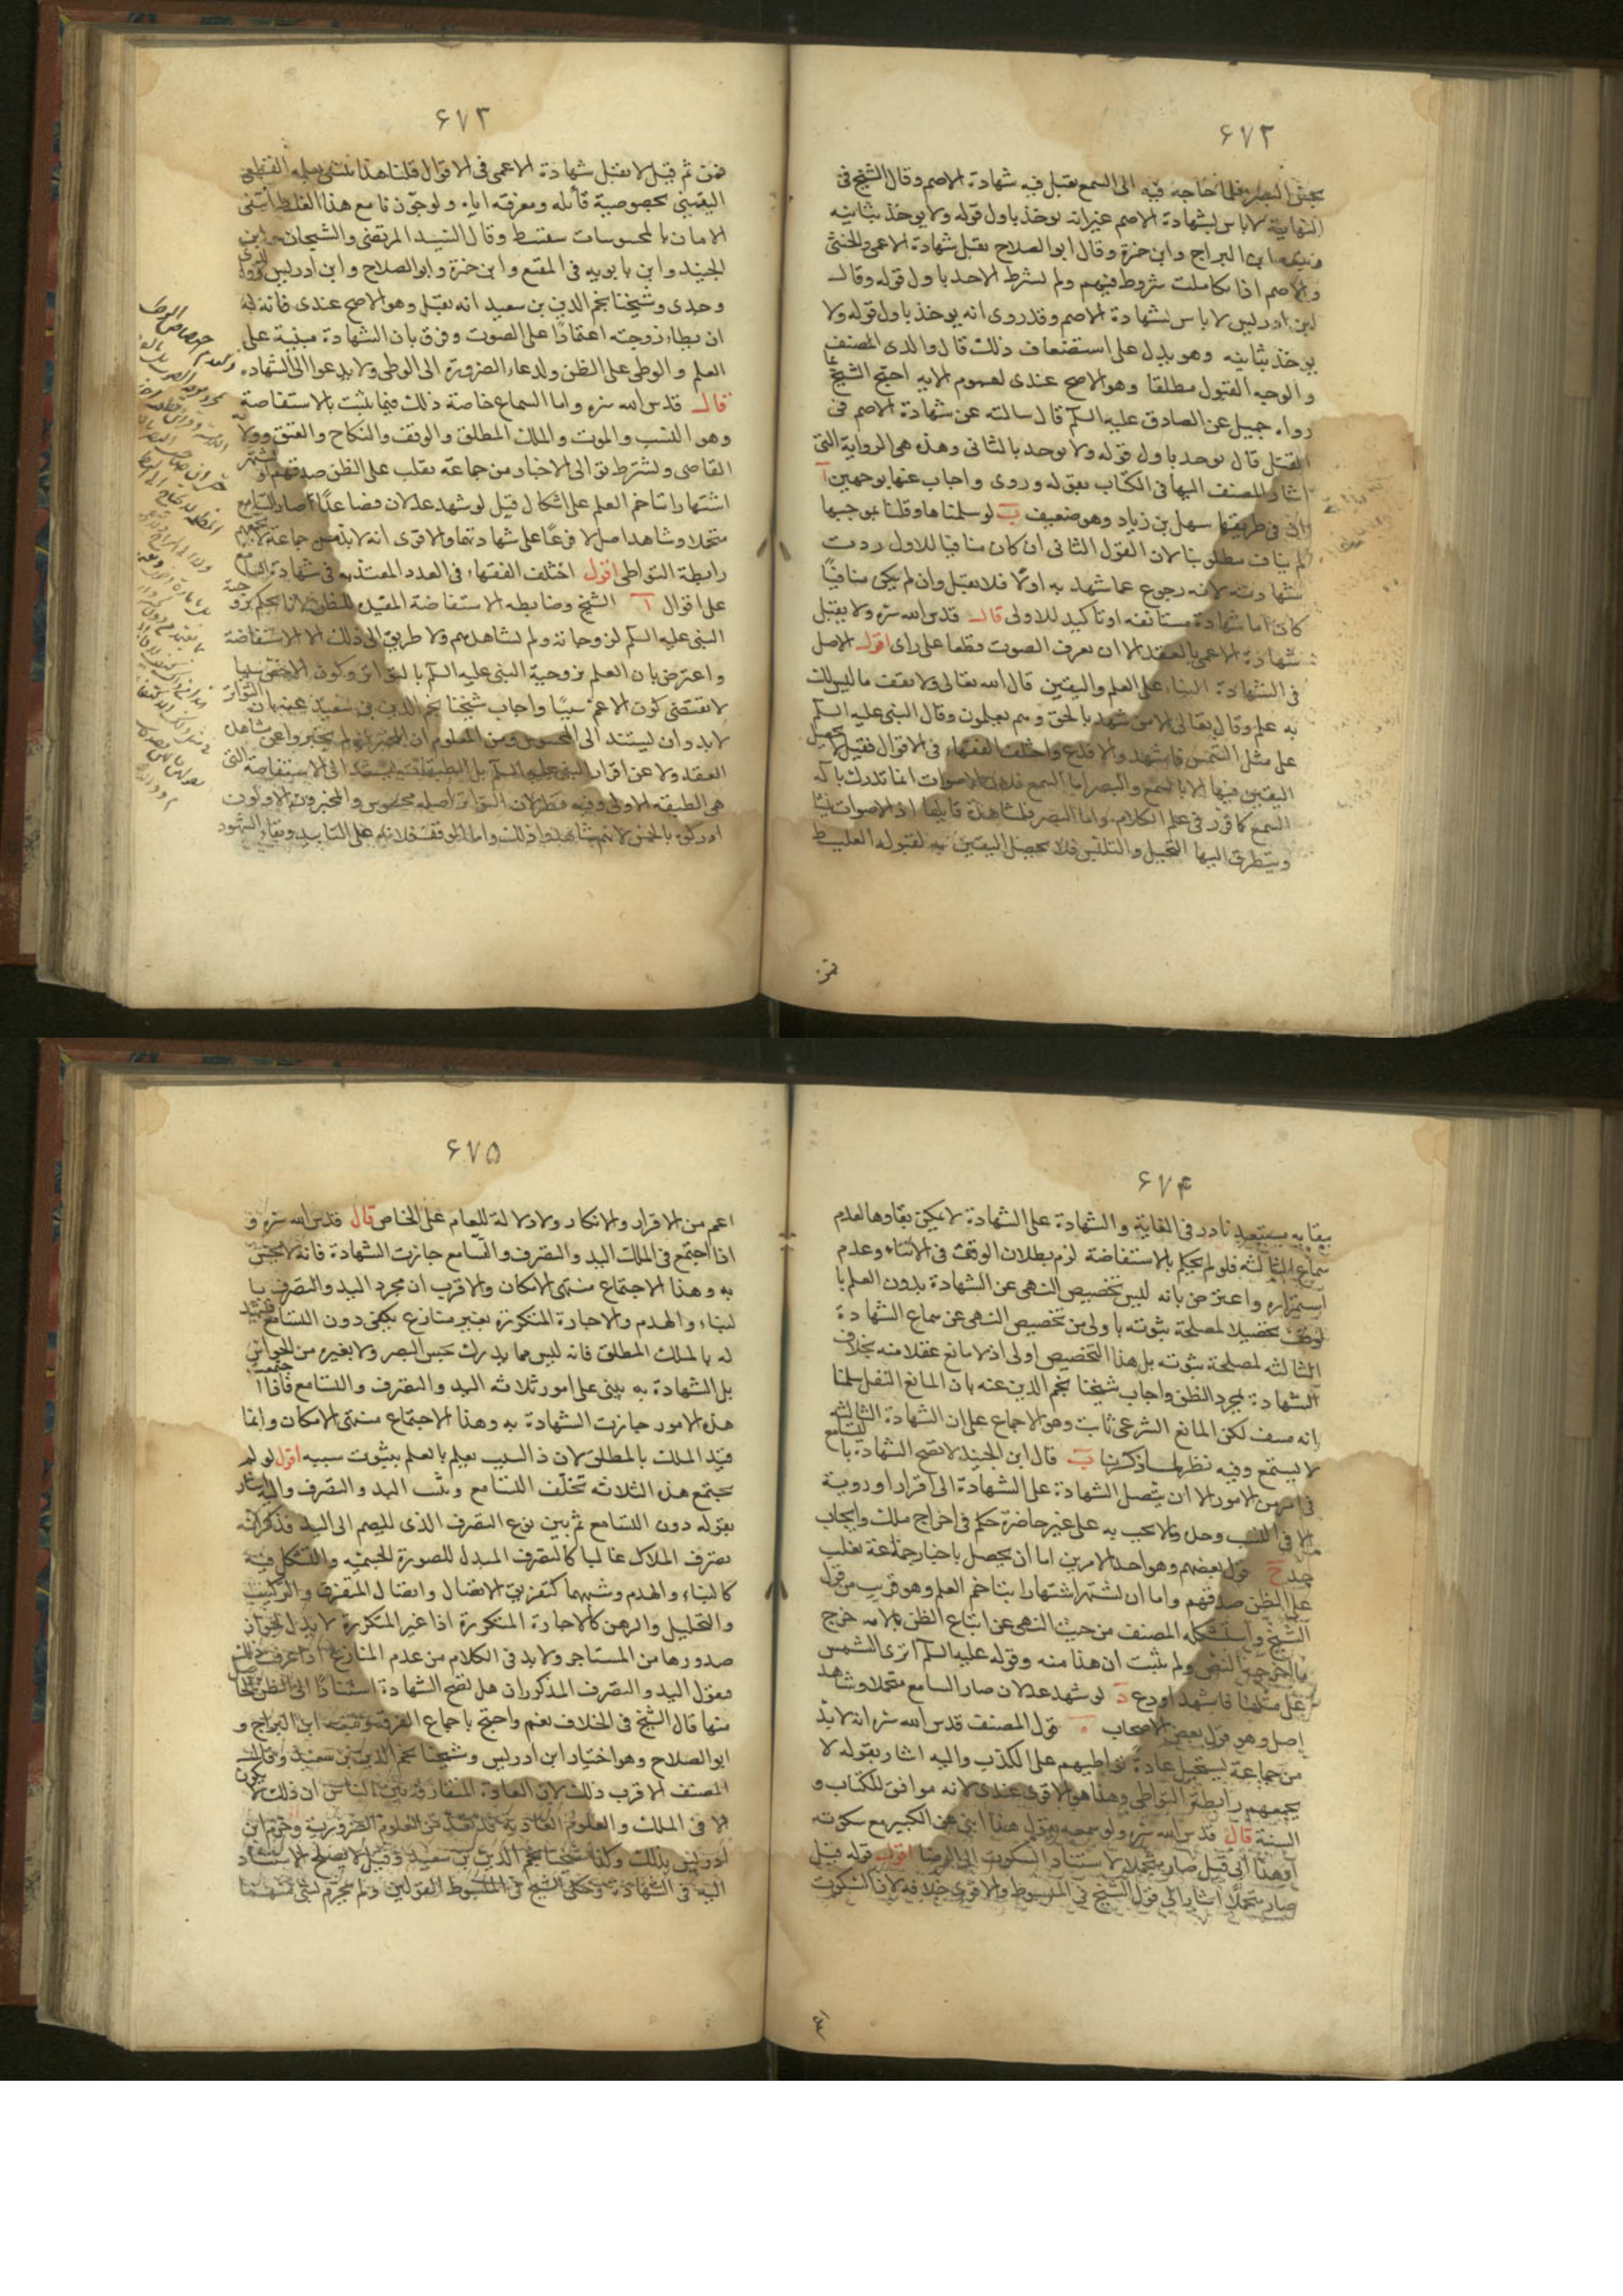 ۶۷۲
بحس البصر فلما حاجه فيه الى السمع تقبل فيه شهادة الاصم وقال الشيخ فى
النهاية لا باس بشهادة الاصم غير انه يوخذ باول قوله ولا يوخذ بثانيه
وتبعه ابن البراج وابن حمزة وقال ابو الصلاح تقبل شهادة الاعمى والخنثى
والاصم اذا تكاملت شروط فيهم ولم يشرط الاخذ باول قوله وقال
ابن ادريس لا باس بشهادة الاصم وقد روى انه يوخذ باول قوله ولا
يوخذ بثانيه وهو يدل على استضعاف ذلك قال والدى المصنف
والوجه القبول مطلقا وهو الاصح عندى لعموم الايه احتج الشيخ بما
رواه جميل عن الصادق عليه السلم قال سالته عن شهادة الاصم فى
القتل قال يوخذ باول قوله ولا يوخذ بالثانى وهذه هى الرواية التى
اشار المصنف اليها فى الكتاب بقوله وروى واجاب عنها بوجهين آ
ان فى طريقها سهل بن زياد وهو ضعيف ب لو سلمناها وقلنا بموجبها
لم يناف مطلوبنا لان القول الثانى ان كان منافيا للاول ردت
شهادته لانه رجوع عما شهد به اولا فلا تقبل وان لم يكن منافيا
كان اما شهادة مستانفه او تاكيد للاولى قال قدس الله سره ولا يقبل
شهادة الاعمى بالعقد الا ان يعرف الصوت قطعا على راى اقول الاصل
فى الشهادة البناء على العلم واليقين قال الله تعالى ولا تقف ما ليس لك
به علم وقال تعالى الا من شهد بالحق وهم يعلمون وقال النبى عليه السلم
على مثل الشمس فاشهد والا فدع واختلف الفقهاء فى الاقوال فقيل لا يحصل
اليقين فيها الا بالسمع والبصر اما السمع فلان الاصوات انما تدرك بآلة
السمع كما قرر فى علم الكلام واما البصر فلمشاهدة قايلها اذ الاصوات
ويتطرق اليها التخيل والتلبس فلا يحصل اليقين به لقبوله الغلط
فمن
۶۷۳
فمن ثم قيل لا تقبل شهادة الاعمى فى الاقوال قلنا هذا
اليقينى بخصوصية قائله ومعرفته اياه ولو جوزنا مع هذا الغلط انتفى
الامان بالمحسوسات سفسط وقال السيد المرتضى والشيخان وابن
الجنيد وابن بابويه فى المقنع وابن حمزة وابو الصلاح وابن ادريس
وجدى وشيخنا نجم الدين بن سعيد انه تقبل وهو الاصح عندى فانه له
ان يطاء زوجته اعتمادًا على الصوت وفرق بان الشهادة مبنية على
العلم والوطى على الظن ولدعاء الضرورة الى الوطى ولا يدعوا الى الشهاده
قال قدس الله سره واما السماع خاصة ذلك فيما يثبت بالاستفاضة
وهو النسب والموت والملك المطلق والوقف والنكاح والعتق وولاية
القاضى ويشترط توالى الاخبار من جماعة يغلب على الظن صدقهم او يشتهر
اشتهارا يتاخم العلم على اشكال قيل لو شهد عدلان فصاعدًا صار السامع
متحملا وشاهد اصل لا فرعًا على شهادتهما والاقرى انه لا بد من جماعة لا يجمعهم
رابطة التواطى اقول اختلف الفقهاء فى العدد المعتد به فى شهادة السامع
على اقوال آ الشيخ وضابطه الاستفاضة المفيد للظن لانا نحكم بزوجية
النبى عليه السلم لزوجاته ولم نشاهدهم ولا طريق الى ذلك الا الاستفاضة
واعترض بان العلم بزوجية النبى عليه السلم بالتواتر وكون الاخص سببا
لا يقتضى كون الاعم سببًا واجاب شيخنا نجم الدين بن سعيد عنه بان التواتر
لا بد وان يستند الى المحسوس ومن المعلوم ان المخبرين لم يخبروا عن مشاهدة
العقد ولا عن اقرار النبى عليه السلم بل الطبقات تستند الى الاستفاضة التى
هى الطبقة الاولى وفيه نظر لان التواتر اصله محسوس والمخبرون الاولون
ادركوه بالحس لانهم شاهدوا ذلك واما الوقف فلانه على التابيد وبقاء الشهود
۶۷۴
بقايه مستبعد نادر فى الغاية والشهادة على الشهادة لا يمكن بقاوها لعدم
سماع الثالثه فلو لم يحكم بالاستفاضة لزم بطلان الوقف فى الاثناء وعدم
استمراره واعترض بانه ليس تخصيص النهى عن الشهادة بدون العلم بالوقف
تحصيلا لمصلحة ثبوته باولى من تخصيص النهى عن سماع الشهادة
الثالثه لمصلحة ثبوته بل هذا التخصيص اولى اذ لا مانع عقلا منه بخلاف
الشهادة بمجرد الظن واجاب شيخنا نجم الدين عنه بان المانع النقل سلمنا
انه منتف لكن المانع الشرعى ثابت وهو الاجماع على ان الشهادة الثالثه
لا يستمع وفيه نظر لما ذكرنا ب قال ابن الجنيد لا تصح الشهادة بالتسامع
فى امر من الامور الا ان يتصل الشهادة على الشهادة الى اقرار او روية
الا فى النسب وحده ولا يجب به على غير حاضرة حكم فى اخراج ملك وايجاب
حد ج قول بعضهم وهو احد الامرين اما ان يحصل باخبار جماعة يغلب
على الظن صدقهم واما ان يشتهر اشتهارا يتاخم العلم وهو قريب من قول
الشيخ واستشكله المصنف من حيث النهى عن اتباع الظن بالايه خرج
ما اخرجه النص ولم يثبت ان هذا منه وقوله عليه السلم اترى الشمس
على مثلها فاشهد او دع د لو شهد عدلان صار السامع متحملا وشاهد
اصل وهو قول بعض الاصحاب ه قول المصنف قدس الله سره انه لا بد
من جماعة يستحيل عادة تواطيهم على الكذب واليه اشار بقوله لا
يجمعهم رابطة التواطى وهذا هو الاقوى عندى لانه موافق للكتاب و
السنة قال قدس الله سره ولو سمعه يقول هذا ابنى عن الكبير مع سكوته
او هذا ابى قيل صار متحملا لاستناد السكوت الى الرضا اقول قوله قيل
صار متحملا اشار الى قول الشيخ فى المبسوط والاقوى خلافه لان السكوت
۶۷۵
اعم من الاقرار والانكار ولا دلالة للعام على الخاص قال قدس الله سره و
اذا اجتمع فى الملك اليد والتصرف والتسامع جازت الشهادة فانه لا يحس
به وهذا الاجتماع منتهى الامكان والاقرب ان مجرد اليد والتصرف با
لبناء والهدم والاجارة المتكررة بغير منازع يكفى دون التسامع فيشهد
له بالملك المطلق فانه ليس مما يدرك بحس البصر ولا بغيره من الحواس
بل الشهادة به يبنى على امور ثلاثه اليد والتصرف والتسامع فاذا اجتمعت
هذه الامور جازت الشهادة به وهذا الاجتماع منتهى الامكان وانما
قيد الملك بالمطلق لان ذا السبب يعلم بالعلم بثبوت سببه اقول لو لم
يجتمع هذه الثلاثه تخلف التسامع وثبت اليد والتصرف واليه اشار
بقوله دون التسامع ثم بين نوع التصرف الذى ينضم الى اليد فذكر انه
تصرف الملاك غالبا كالتصرف المبدل للصورة الجسميه والتشكل فيه
كالبناء والهدم وشبههما كتفريق الاتصال واتصال المتفرق والتركيب
والتحليل والرهن كالاجارة المتكررة اذا غير المتكررة لا يدل لجواز
صدورها من المستاجر ولا بد فى الكلام من عدم المنازع اذا عرف ذلك
فنقول اليد والتصرف المذكوران هل تصح الشهادة استنادًا الى الظن الحاصل
منها قال الشيخ فى الخلاف نعم واحتج باجماع الفرقة وتبعه ابن البراج و
ابو الصلاح وهو اختيار ابن ادريس وشيخنا نجم الدين بن سعيد وقال
المصنف الاقرب ذلك لان العادة المتعارفة بين الناس ان ذلك لا يكون
الا فى الملك والعلوم العادية قد تعد من العلوم الضرورية وجزم ابن
ادريس بذلك وكذا شيخنا نجم الدين بن سعيد وقيل لا يصلح الاستناد
اليه فى الشهادة وحكى الشيخ فى المبسوط القولين ولم يجزم بشى منهما